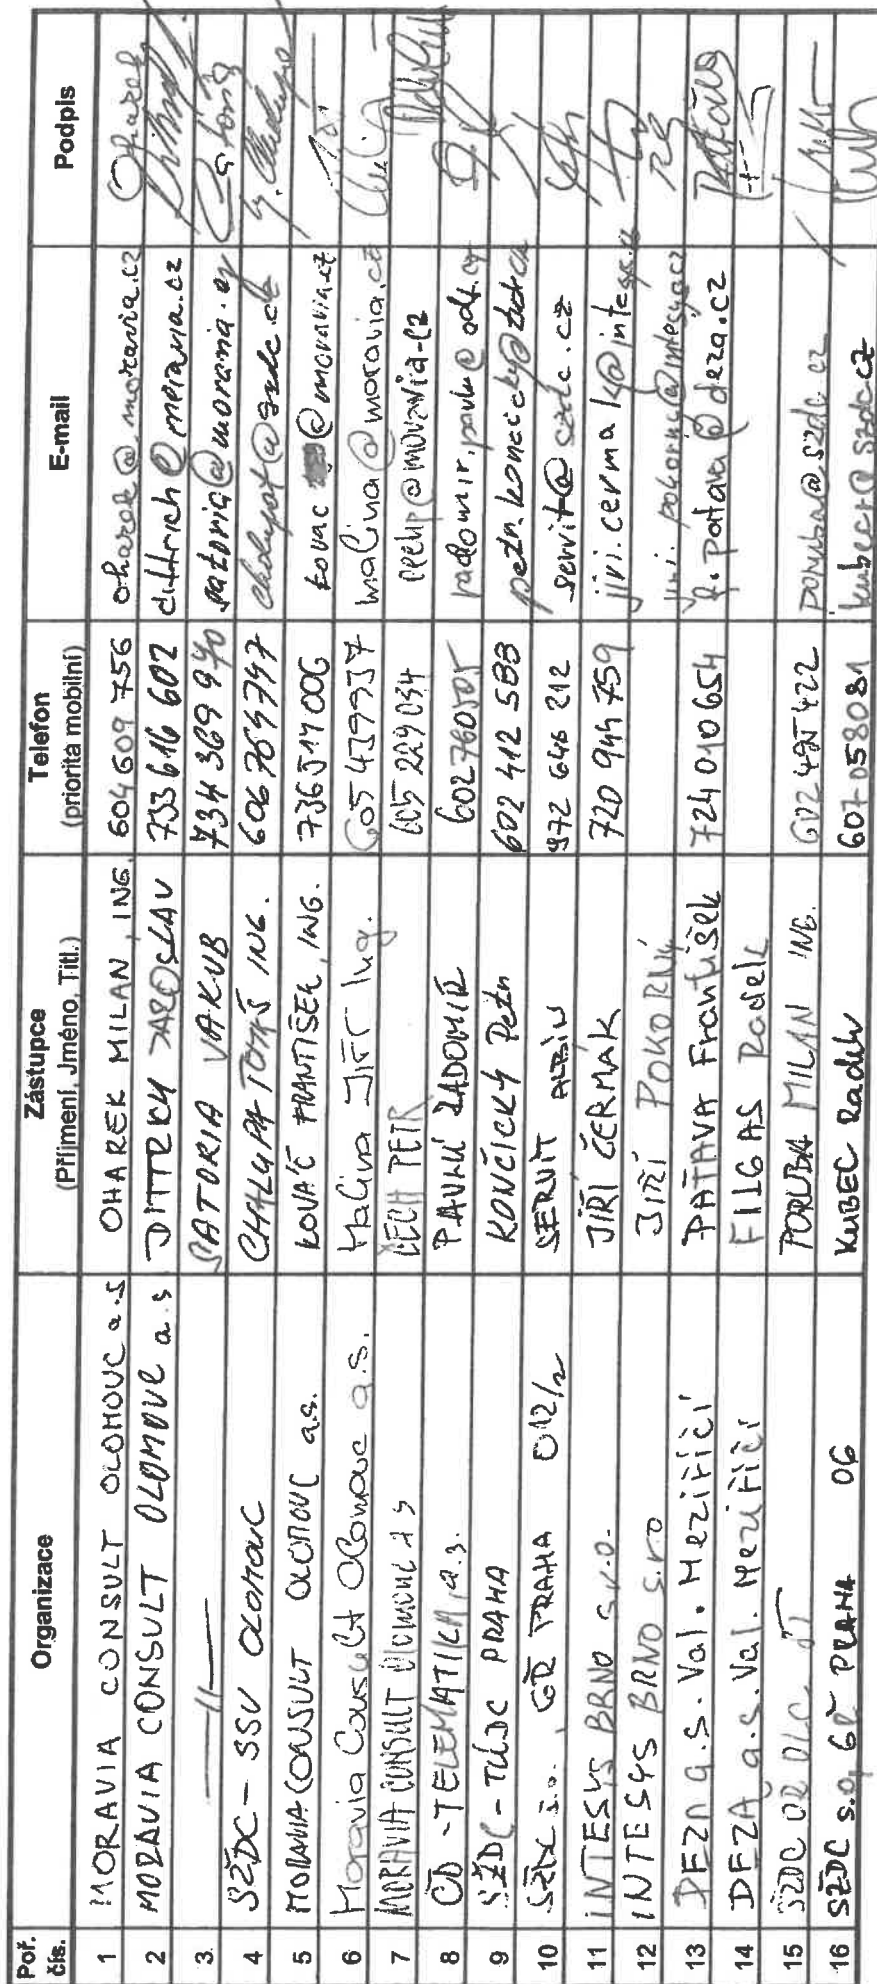 Poř. čís. Organizace Zástupce (Příjmení, Jméno, Titl.) Telefon (priorita mobilní) E-mail Podpis
1 MORAVIA CONSULT OLOMOUC a.s OHAREK MILAN, ING. 604 609 756 oharek@moravia.cz Oharek
2 MORAVIA CONSULT OLOMOUC a.s DITTRICH JAROSLAV 733 616 602 dittrich@moravia.cz
3 —"— SATORIA JAKUB 734 369 970 satoria@moravia.cz
4 SŽDC - SSV OLOMOUC CHALUPA TOMÁŠ ING. 606 764 747 chalupat@szdc.cz
5 MORAVIA CONSULT OLOMOUC a.s. KOVAČ FRANTIŠEK, ING. 736 514 006 kovac@moravia.cz
6 Moravia Consult Olomouc a.s. Malina JIŘÍ Ing. 605 439937 malina@moravia.cz
7 MORAVIA CONSULT OLOMOUC a s ČECH PETR 605 229 034 cechp@moravia.cz
8 ČD - TELEMATIKA, a.s. PAVLŮ RADOMÍR 602760505 radomir.pavlu@cdt.cz
9 SŽDC - TÚDC PRAHA KONČICKÝ Petr 602 412 583 petr.koncicky@tudc.cz
10 SŽDC s.o., GŘ PRAHA O12/2 SERVIT ALBÍN 972 646 212 servit@szdc.cz
11 INTESYS BRNO s.r.o. JIŘÍ ČERMÁK 720 944 759 jiri.cermak@intesys.cz
12 INTESYS BRNO s.r.o JIŘÍ POKORNÝ jiri.pokorny@intesys.cz
13 DEZA a.s. Val. Meziříčí PAŤAVA František 724 010 654 f.patava@deza.cz
14 DEZA a.s. Val. Meziříčí FILGAS Radek
15 SŽDC OŘ OLC PORUBA MILAN ING. poruba@szdc.cz
16 SŽDC s.o, GŘ PRAHA O6 KUBEC Radek 607058081 kubecr@szdc.cz